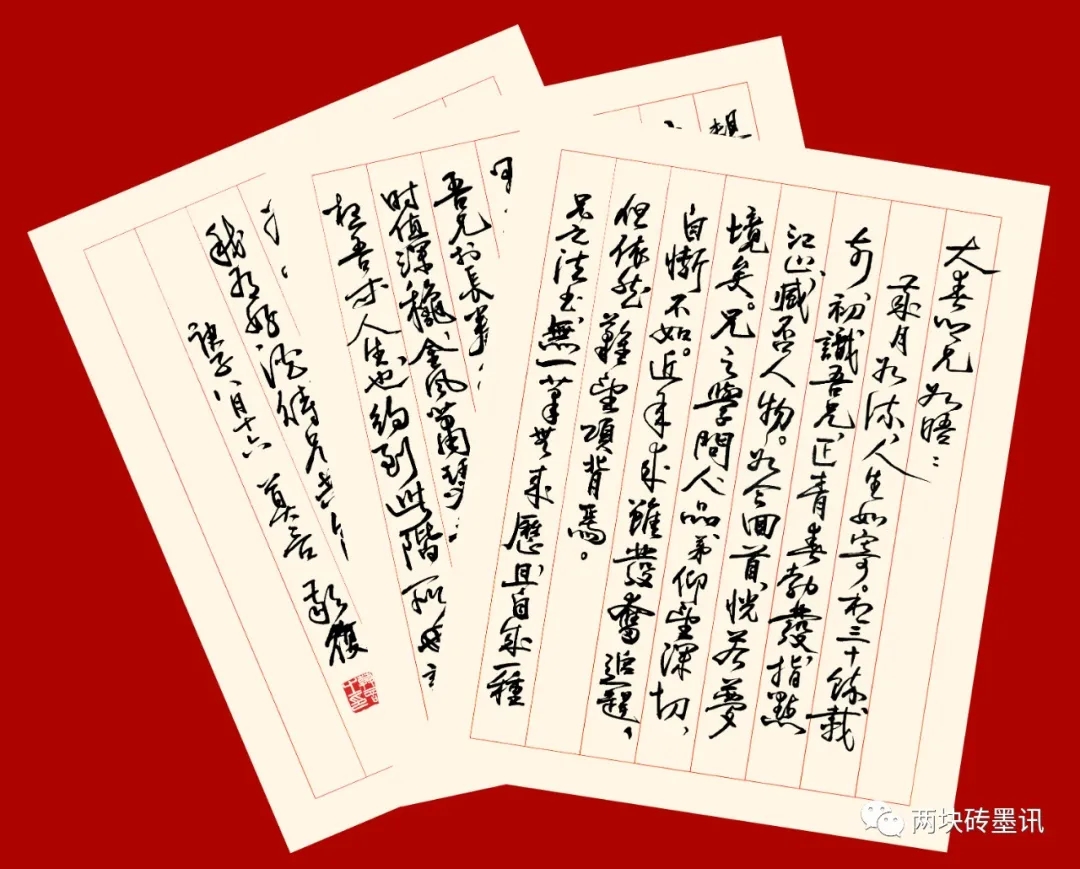 大春仁兄如晤：
歲月如流，人生如寄。三十餘載
前初識吾兄，正青春勃發，指點
江山，臧否人物。如今回首，恍若夢
境矣。兄之學問人品弟仰望深切，
自慚不如。近年來雖發奮追趕，
但依然難望項背焉。
兄之法書無一筆無來歷且自成一種
吾兄於長
时值深秋，金風蕭瑟
想吾等人生也約到此階
我有好酒待兄
庚子八月十六 莫言 敬復
两块砖墨讯